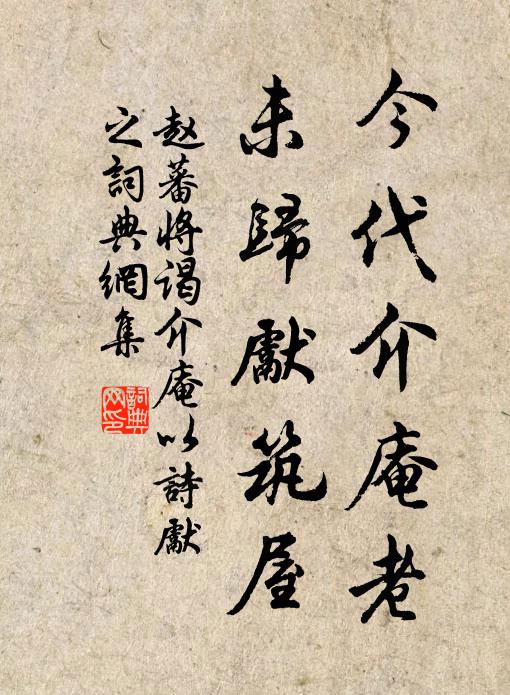 今代介庵老
未歸獻筑屋
赵蕃将谒介庵以詩獻
之詞典網集
詞典
网印